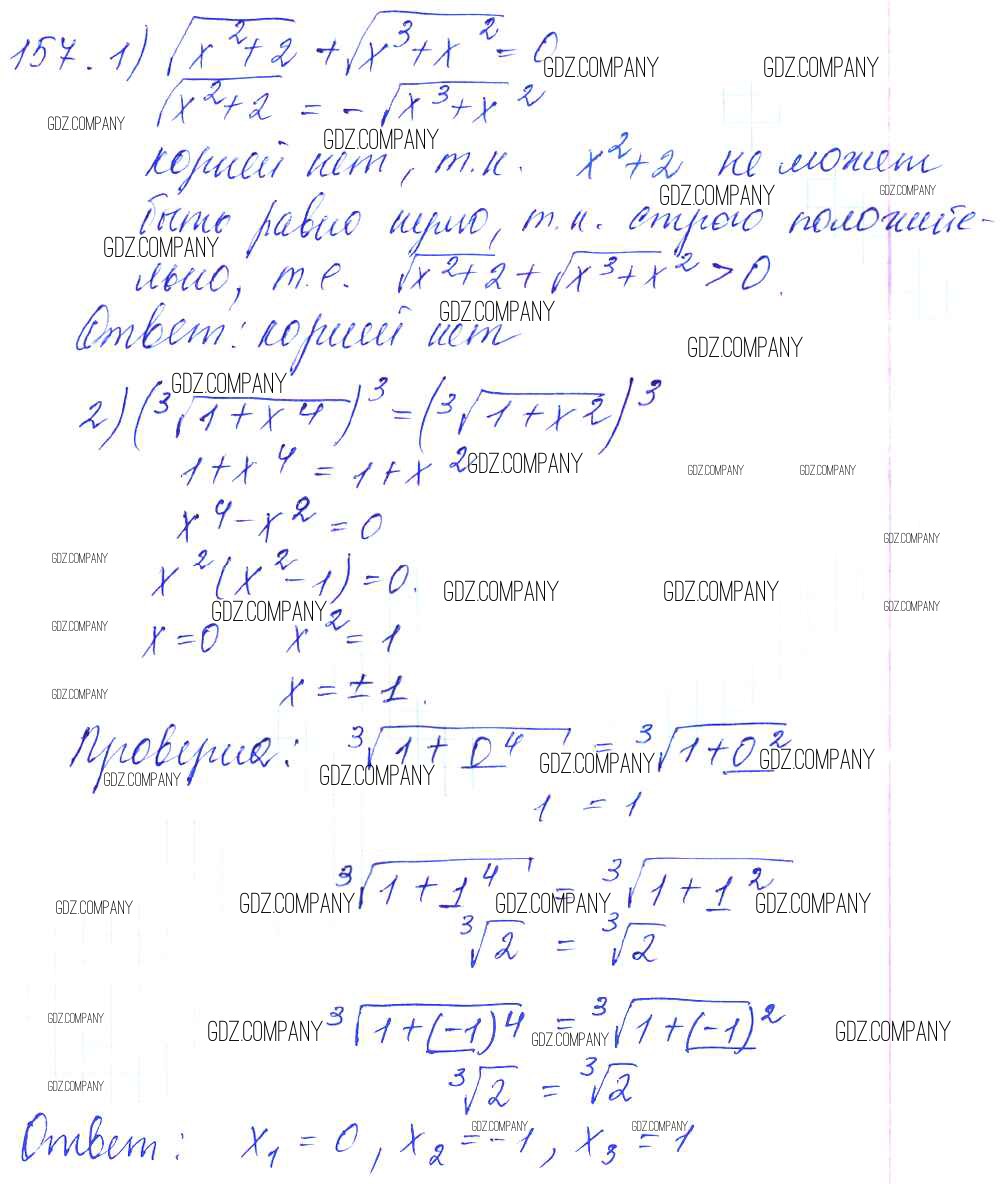 157. 1) √(x²+2) + √(x³+x²) = 0
GDZ.COMPANY GDZ.COMPANY
√(x²+2) = -√(x³+x)²
GDZ.COMPANY GDZ.COMPANY
корней нет, т.к. x²+2 не может
GDZ.COMPANY GDZ.COMPANY
быть равно нулю, т.к. строго положите-
GDZ.COMPANY
льно, т.е. √(x²+2) + √(x³+x)² > 0.
GDZ.COMPANY
Ответ: корней нет
GDZ.COMPANY
GDZ.COMPANY
2) (³√(1+x⁴))³ = (³√(1+x²))³
1+x⁴ = 1+x²
GDZ.COMPANY GDZ.COMPANY GDZ.COMPANY
x⁴-x² = 0
GDZ.COMPANY
GDZ.COMPANY
x²(x²-1) = 0.
GDZ.COMPANY GDZ.COMPANY
GDZ.COMPANY GDZ.COMPANY
GDZ.COMPANY
x=0 x² = 1
GDZ.COMPANY
x = ±1.
Проверка: ³√(1+0⁴) = ³√(1+0²)
GDZ.COMPANY GDZ.COMPANY GDZ.COMPANY GDZ.COMPANY
1 = 1
³√(1+1⁴) = ³√(1+1²)
GDZ.COMPANY GDZ.COMPANY GDZ.COMPANY GDZ.COMPANY
³√2 = ³√2
³√(1+(-1)⁴) = ³√(1+(-1)²)
GDZ.COMPANY GDZ.COMPANY GDZ.COMPANY GDZ.COMPANY
³√2 = ³√2
GDZ.COMPANY
Ответ: x₁ = 0, x₂ = -1, x₃ = 1
GDZ.COMPANY GDZ.COMPANY